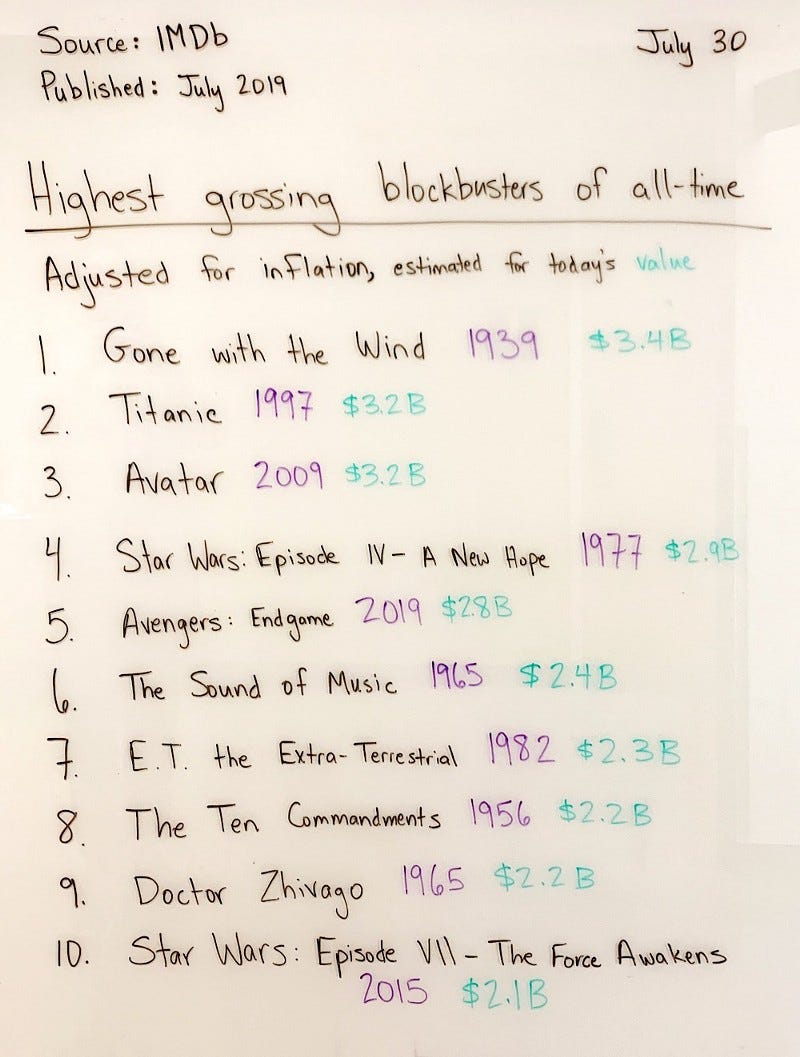 Source: IMDb
July 30
Published: July 2019
Highest grossing blockbusters of all-time
Adjusted for inflation, estimated for today's value
1. Gone with the Wind 1939 $3.4B
2. Titanic 1997 $3.2B
3. Avatar 2009 $3.2B
4. Star Wars: Episode IV - A New Hope 1977 $2.9B
5. Avengers: Endgame 2019 $2.8B
6. The Sound of Music 1965 $2.4B
7. E.T. the Extra-Terrestrial 1982 $2.3B
8. The Ten Commandments 1956 $2.2B
9. Doctor Zhivago 1965 $2.2B
10. Star Wars: Episode VII - The Force Awakens
2015 $2.1B